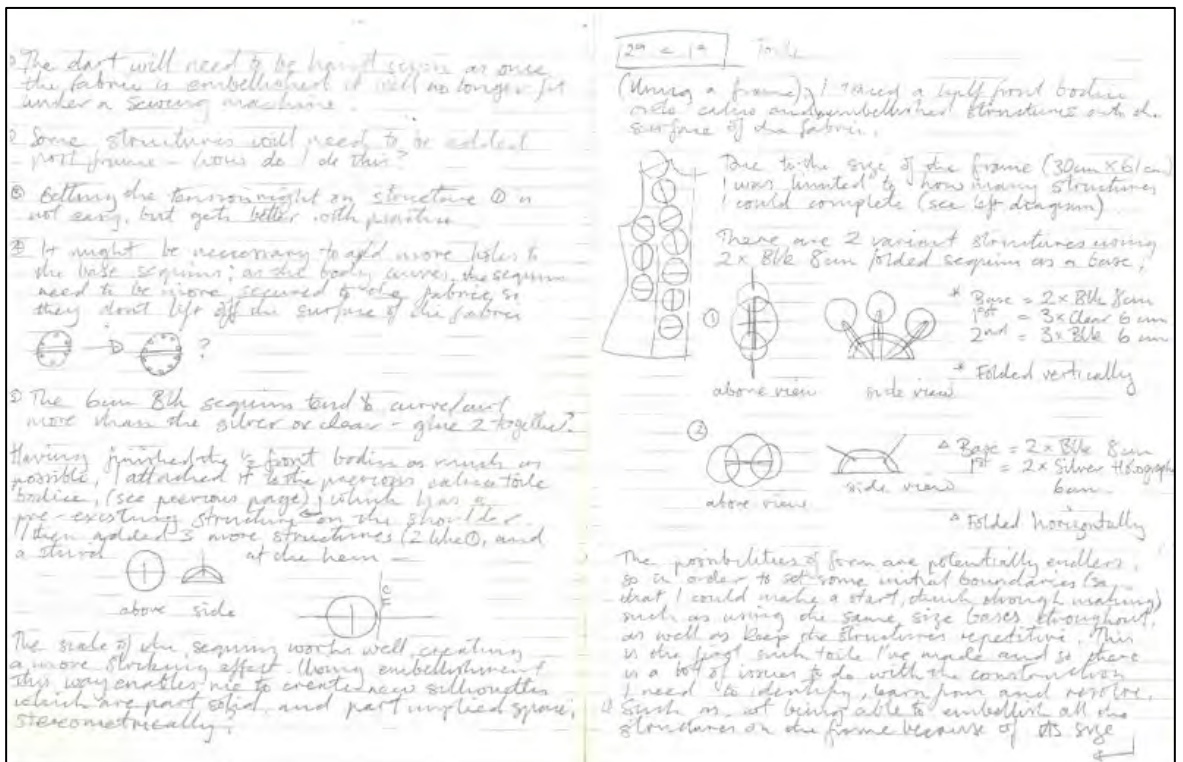 The dart will need to be hand sewn as once
the fabric is embellished it will no longer fit
under a sewing machine.
2 Some structures will need to be added
post frame – how do I do this?
③ Getting the tension right on structure ① is
not easy, but gets better with practice
④ It might be necessary to add more holes to
the base sequins; as the body curves, the sequins
need to be more secured to the fabric so
they dont lift off the surface of the fabric
?
5 The 6cm Blk sequins tend to curve/curl
more than the silver or clear – glue 2 together?
Having finished the ½ front bodice as much as
possible, I attached it to the previous calico toile
bodice, (see previous page), which has a
pre-existing structure on the shoulder.
I then added 3 more structures (2 like ①, and
a third at the hem –
above side
The scale of the sequins works well, creating
a more striking effect. Using embellishment
this way enables me to create new silhouettes
which are part solid, and part implied space,
stereometrically?
Toile
(Using a frame), I traced a half front bodice
onto calico and embellished structures onto the
surface of the fabric.
Due to the size of the frame (30cm x 61cm)
I was limited to how many structures
I could complete (see left diagram)
There are 2 variant structures using
2 x Blk 8cm folded sequins as a base;
①
* Base = 2 x Blk 8cm
1st = 3 x Clear 6 cm
2nd = 3 x Blk 6 cm
* Folded vertically
above view side view
②
Base = 2 x Blk 8cm
1st = 2 x Silver Holograph
6cm
Folded horizontally
above view side view
The possibilities of form are potentially endless,
so in order to set some initial boundaries (so
that I could make a start, think through making)
such as using the same size bases throughout,
as well as keep the structures repetitive. This
is the first such toile I've made and so there
is a lot of issues to do with the construction
I need to identify, learn from and resolve.
Such as not being able to embellish all the
structures on the frame because of its size